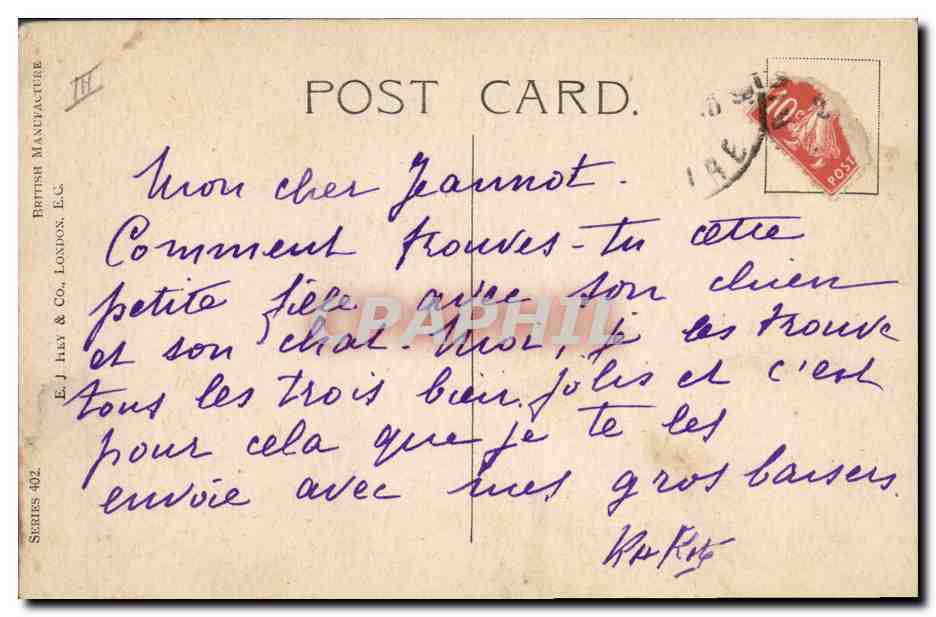 POST CARD.
BRITISH MANUFACTURE
E. J. HEY & CO., LONDON, E.C.
SERIES 402.
III
10c
POST
CPAPHIL
Mon cher Jeannot.
Comment trouves-tu cette
petite fille avec son chien
et son chat. Moi, je les trouve
tous les trois bien jolis et c'est
pour cela que je te les
envoie avec mes gros baisers.